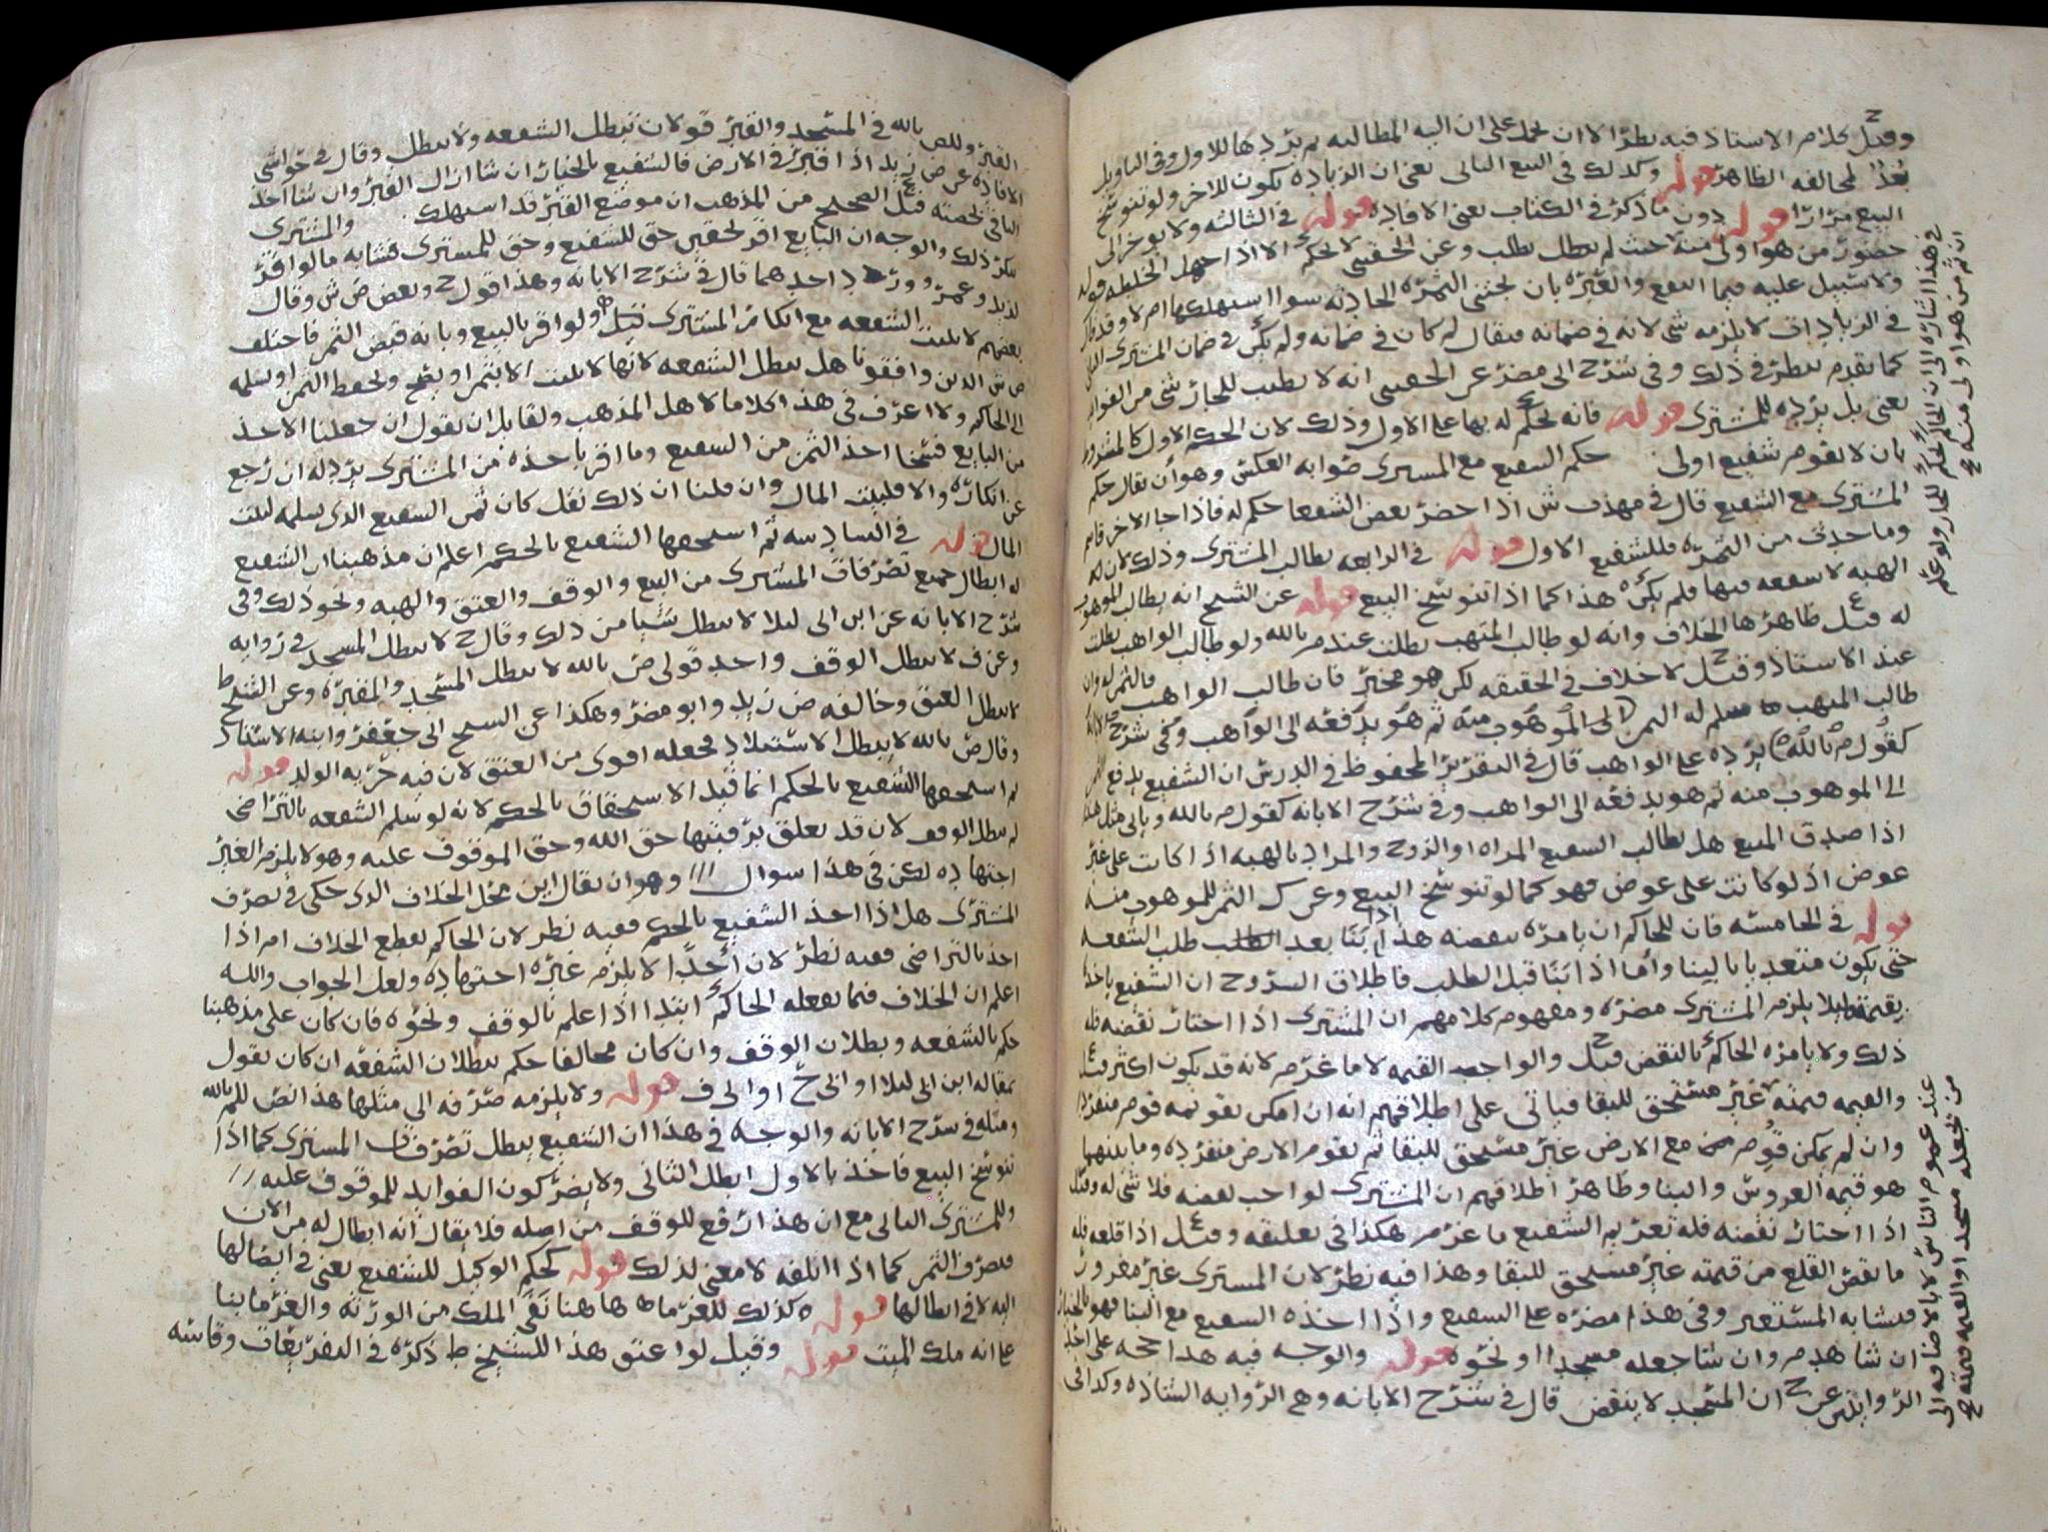 وقيل كلام الاستاذ فيه نظر الا ان يحمل على ان اليه المطالبه ثم يردها للاول وفى التاويل
بعد لمخالفه الظاهر قوله وكذلك فى البيع الثانى يعنى ان الزياده يكون للاخر ولو تنوسخ
البيع مرارا قوله دون ما ذكر فى الكتاب يعنى الافاده قوله فى الثالثه ولا يوخر الى
حضور من هو اولى منه حيث لم يبطل بطلب وعن الحقينى لا يحكم الا اذا جهل الخلطه قوله
ولا سبيل عليه فيما انتفع والغيره بان يجتنى الثمره الحادثه سوا استهلكها ام لا وقد ذكر
فى الزيادات لا يلزمه شى لانه فى ضمانه فيقال لم كان فى ضمانه ولم يكن فى ضمان المشترى
كما تقدم ينظر فى ذلك وفى شرح ابى مضر عن الحقينى انه لا يطيب للجار شى من الفوايد
يعنى بل يرده للمشترى قوله فانه يحكم له بها على الاول وذلك لان الحكم الاول كالمشروط
بان لا يقوم شفيع اولى حكم الشفيع مع المشترى صوابه العكس وهو ان يقال حكم
المشترى مع الشفيع قال فى مهذب ش اذا حضر بعض الشفعا حكم له فاذا جا الاخر قاسم
وما حدث من الثمره فللشفيع الاول قوله فى الرابعه يطالب المشترى وذلك لان
الهبه لا شفعه فيها فلم يكن هذا كما اذا تنوسخ البيع قوله عن الشيخ انه يطالب الموهوب
له قيل ظاهرها الخلاف وانه لو طالب المتهب بطلت عند م بالله ولو طالب الواهب بطلت
عند الاستاذ وقيل لا خلاف فى الحقيقه لكن هو مخير فان طالب الواهب فالثمن له وان
طالب المتهب سلم له الثمن الى الموهوب منه ثم هو يدفعه الى الواهب وفى شرح
كقول م بالله يرده على الواهب قال فى التقرير المحفوظ فى الدرس ان الشفيع يدفع
الى الموهوب منه ثم هو يدفعه الى الواهب وفى شرح الابانه كقول م بالله وياتى مثل هذا
اذا صدق المبيع هل يطالب الشفيع المراه او الزوج والمراد بالهبه اذا كانت على غير
عوض اذ لو كانت على عوض فهو كما لو تنوسخ البيع وعن ك الثمن للموهوب منه
قوله فى الخامسه فان للحاكم ان يامره بنقضه هذا اذا بنا بعد الطلب طلب الشفعه
حتى يكون متعديا بالبنا واما اذا بنا قبل الطلب فاطلاق الشروح ان الشفيع ياخذ
بقيمته ليلا يلزم المشترى مضره ومفهوم كلامهم ان المشترى اذا اختار نقضه فله
ذلك ولا يامره الحاكم بالنقض قيل والواجب القيمه لا ما غرم لانه قد يكون اكثر
والقيمه قيمته غير مستحق للبقا فياتى على اطلاقهم انه ان امكن تقويمه قوم منفردا
وان لم يمكن قوم مع الارض غير مستحق للبقا ثم يقوم الارض منفرده وما بينهما
هو قيمه الغروس والبنا وظاهر اطلاقهم ان المشترى لو احب نقضه فلا شى له وقيل
اذا اختار نقضه فله تغريم الشفيع ما غرم هكذا فى تعليقه وقيل اذا قلعه فله
ما نقص القلع من قيمته غير مستحق للبقا وهذا فيه نظر لان المشترى غير مغرور
فيشابه المستعير وفى هذا مضره على الشفيع واذا اخذه الشفيع مع البنا فهو بالخيار
ان شا هدم وان شا جعله مسجدا او نحوه قوله والوجه فيه هذا حجه على احد
الروايتين عن ح ان المسجد لا ينقض قال فى شرح الابانه وهى الروايه الشاذه وكذا فى
فى هذا اشاره الى ان الحاكم يحكم للجار ولو علم
ان ثم من هو اولى منه ح
عند عموم الناس لا بالاضافه الى
من يجعله مسجدا والقيمه قيمته ح
القبر وللص بالله فى المسجد والقبر قولان تبطل الشفعه ولا تبطل وقال فى حواشى
الافاده عن ض زيد اذا قبر فى الارض فالشفيع بالخيار ان شا ازال القبر وان شا اخذ
الباقى بحصته قيل الصحيح من المذهب ان موضع القبر قد استهلك والمشترى
ينكر ذلك والوجه ان البايع اقر بحقين حق للشفيع وحق للمشترى فشابه ما لو اقر
لزيد وعمرو ورد احدهما قال فى شرح الابانه وهذا قول ح وبعض ص ش وقال
بعضهم لا يثبت الشفعه مع انكار المشترى قيل ولو اقر بالبيع وبانه قبض الثمن فاختلف
ص ش الذين وافقونا هل تبطل الشفعه لانها لا تثبت الا بثمن او يصح ويحفظ الثمن او يسلمه
الى الحاكم ولا اعرف فى هذا كلاما لاهل المذهب ولقايل ان يقول ان جعلنا الاخذ
من البايع فسخا اخذ الثمن من الشفيع وما اقر باخذه من المشترى يرد له ان رجع
عن انكاره والا فلبيت المال وان قلنا ان ذلك نقل كان ثمن الشفيع الذى يسلمه لبيت
المال قوله فى السادسه ثم استحقها الشفيع بالحكم اعلم ان مذهبنا ان الشفيع
له ابطال جميع تصرفات المشترى من البيع والوقف والعتق والهبه ونحو ذلك وفى
شرح الابانه عن ابن ابى ليلا لا يبطل شيا من ذلك وقال ح لا يبطل المسجد فى روايه
وعن ف لا يبطل الوقف واحد قولى ص بالله لا يبطل المسجد والمقبره وعن الشيخ ط
لا يبطل العتق وخالفه ض زيد وابو مضر وهكذا عن الشيخ ابى جعفر وابنه الاستاذ
وقال ص بالله لا يبطل الاستيلاد فجعله اقوى من العتق لان فيه حريه الولد قوله
ثم استحقها الشفيع بالحكم انما قيد الاستحقاق بالحكم لانه لو سلم الشفعه بالتراضى
لم يبطل الوقف لان قد تعلق برقبتها حق الله وحق الموقوف عليه وهو لا يلزم الغير
اجتهاده لكن فى هذا سوال وهو ان يقال اين محل الخلاف الذى حكى فى تصرف
المشترى هل اذا اخذ الشفيع بالحكم ففيه نظر لان الحاكم يقطع الخلاف ام اذا
اخذ بالتراضى ففيه نظر لان احدا لا يلزم غيره اجتهاده ولعل الجواب والله
اعلم ان الخلاف فيما يفعله الحاكم ابتدا اذا علم بالوقف ونحوه فان كان على مذهبنا
حكم بالشفعه وبطلان الوقف وان كان مخالفا حكم ببطلان الشفعه ان كان يقول
بمقاله ابن ابى ليلا او ابى ح او ابى ف قوله ولا يلزمه صرفه الى مثلها هذا نص للم بالله
ومثله فى شرح الابانه والوجه فى هذا ان الشفيع يبطل تصرفات المشترى كما اذا
تنوسخ البيع فاخذ بالاول ابطل الثانى ولا يضر كون الفوايد للموقوف عليه
وللمشترى الثانى مع ان هذا ارفع للوقف من اصله فلا يقال انه ابطال له من الان
فيصرف الثمن كما اذا اتلفه لا معنى لذلك قوله كحكم الوكيل للشفيع يعنى فى ايصالها
اليه لا فى ابطالها قوله وكذلك للغرما ط هاهنا نفى الملك من الورثه والغرما بنا
على انه ملك الميت قوله وقيل لو اعتق هذا للشيخ ط ذكره فى التفريعات وقاسه